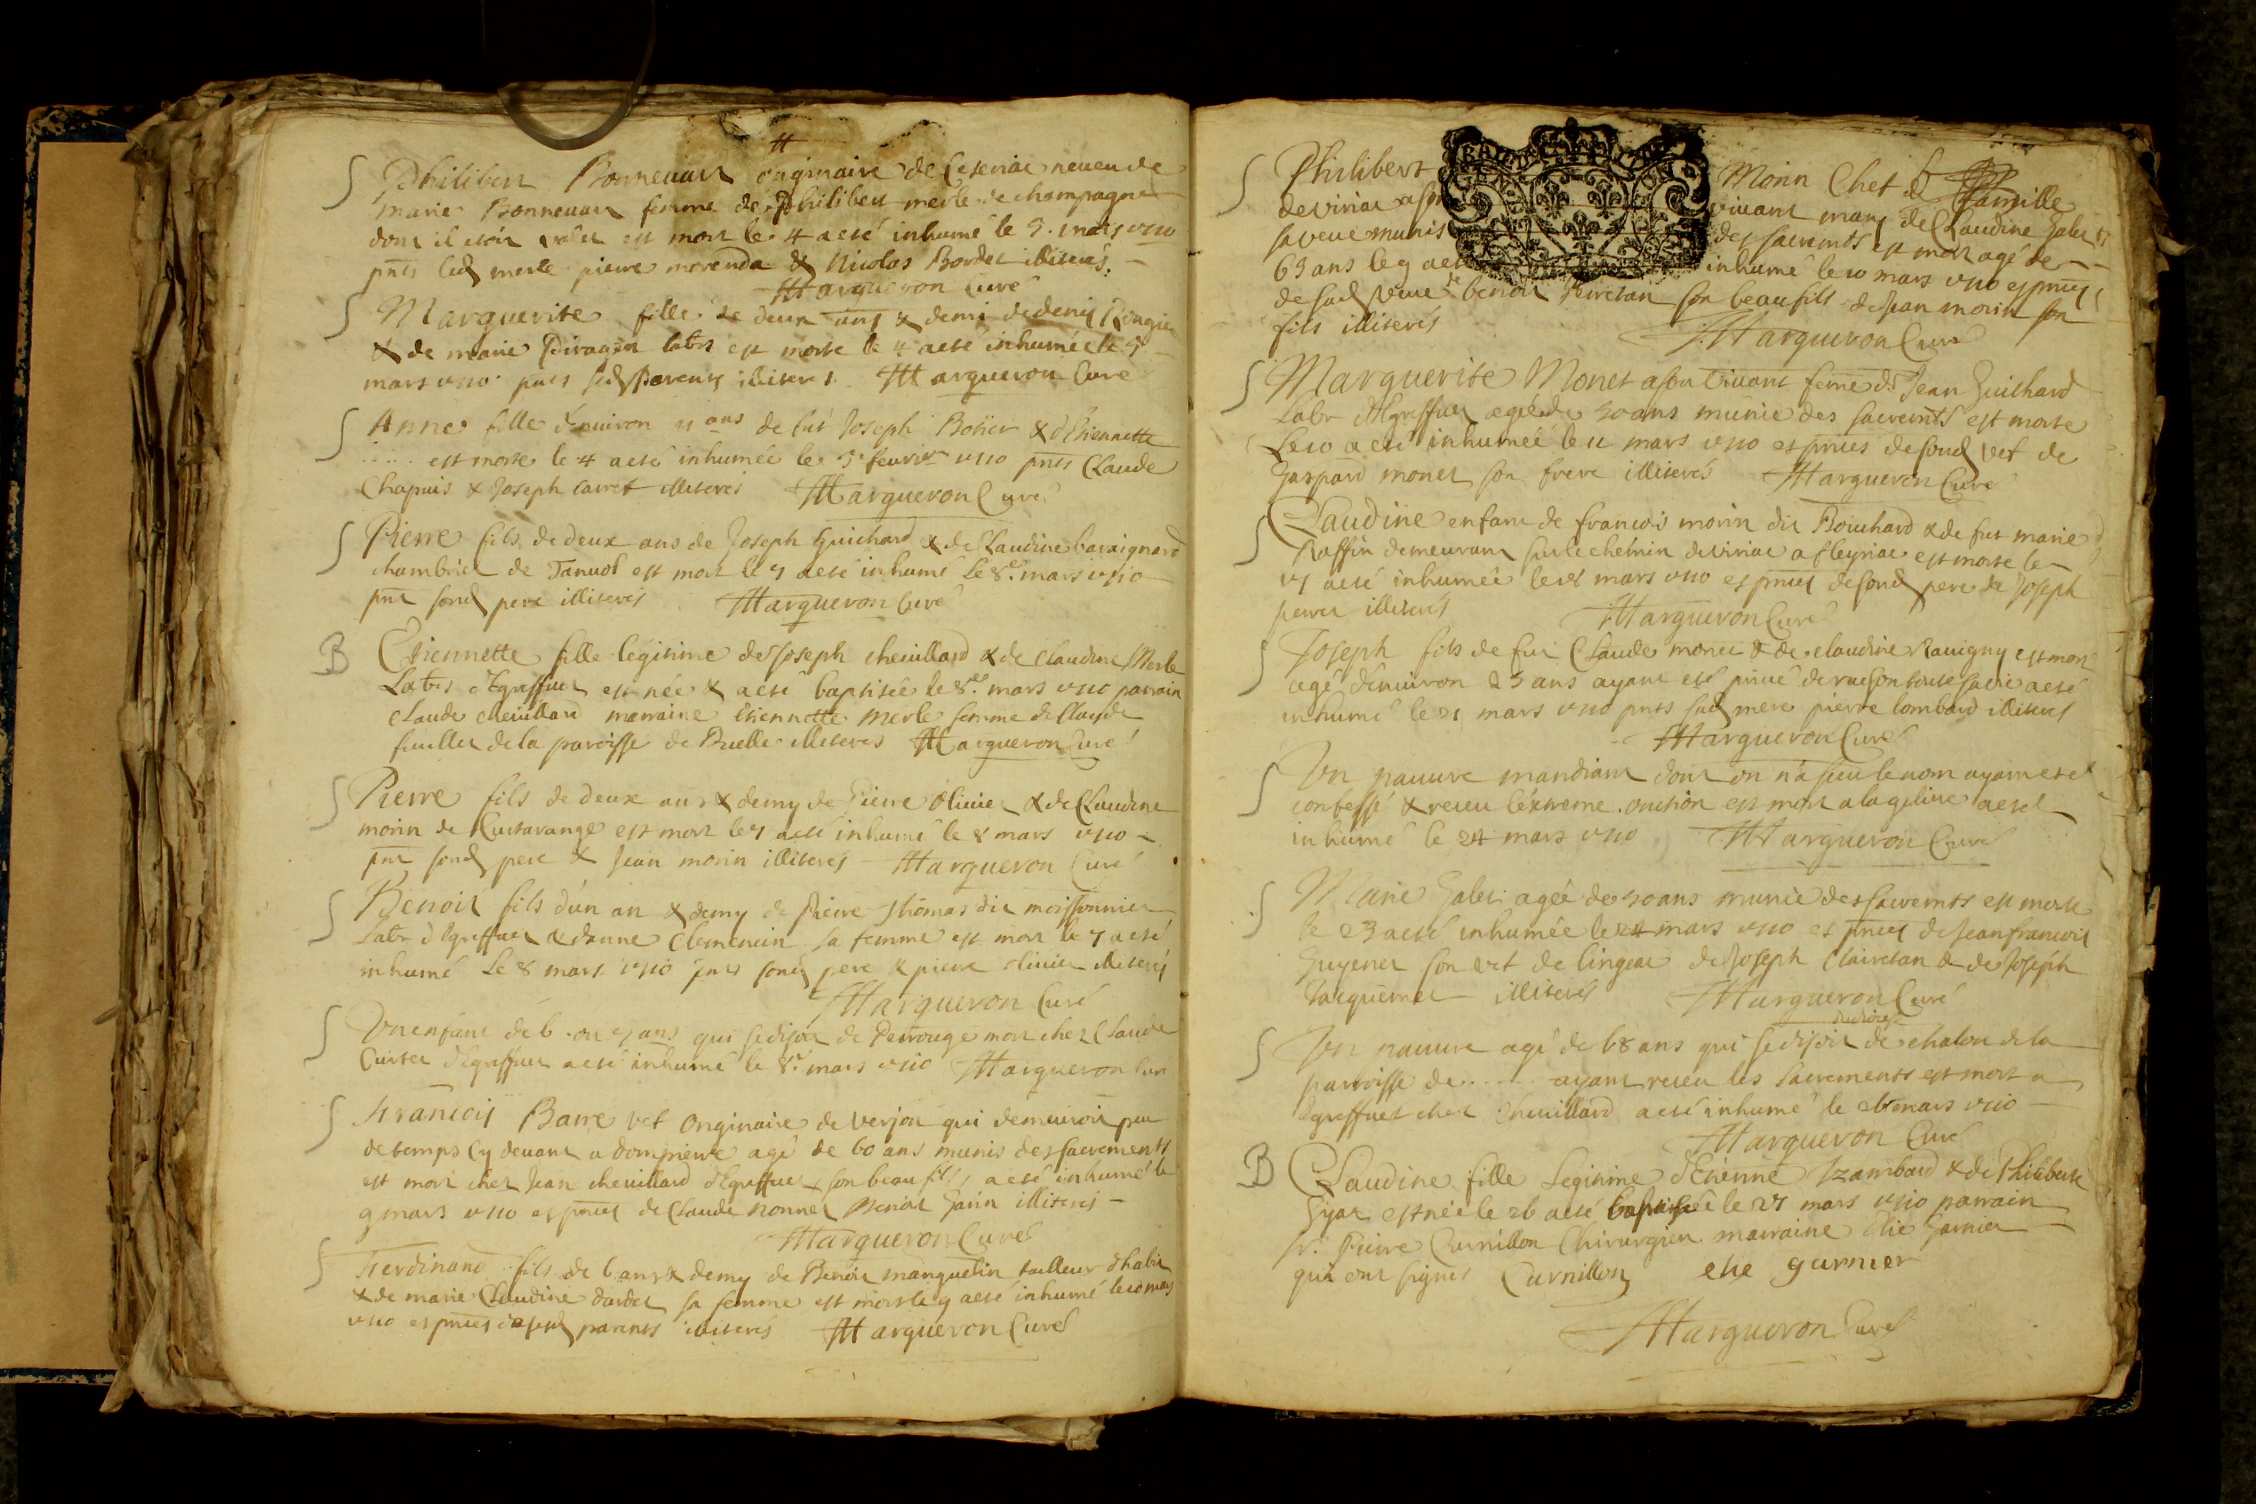 Philibert Bonnevau originaire de Ceseriac neveu de
marie Bonnevau femme de Philibert merle de champagne
dont il etoit valet est mort le 4 a eté inhumé le 5 mars 1710
pnts led merle pierre morenda & Nicolas Bordet illiterés
Margueron Curé
Marguerite fille de deux ans & demi de denis
& de marie labrs est morte le 4 a eté inhumée le 5
mars 1710 pnts sesd Parents illiterés Margueron Curé
Anne fille d'environ 11 ans de fût Joseph & d'Etiennette
..... est morte le 4 a eté inhumée le 5e fevrier 1710 pnts Claude
Chapuis & Joseph carret illiterés Margueron Curé
Pierre fils de deux ans de Joseph Guichard & de Claudine
de Tanvol est mort le 7 a eté inhumé le 8e mars 1710
pnt sond pere illiterés Margueron Curé
B Etiennette fille legitime de Joseph chevillard & de Claudine Merle
Labrs d'Egreffuet est née & a eté baptisée le 8e mars 1710 parrain
Claude chevillard marraine Etiennette merle femme de Claude
de la paroisse de Buelle illiterés Margueron Curé
Pierre fils de deux ans & demy de Pierre Olivier & de Claudine
morin de Curtarange est mort le 7 a eté inhumé le 8 mars 1710
pnt sond pere & Jean morin illiterés Margueron Curé
Benoit fils d'un an & demy de Pierre Thomas dit moissonnier
Labr d'Egreffuet & d'anne Clemencin sa femme est mort le 7 a eté
inhumé le 8 mars 1710 pnts sond pere & pierre olivier illiterés
Margueron Curé
Un enfant de 6 ou 7 ans qui se disoit de Perrouge mort chez Claude
Curtet d'Egreffuet a eté inhumé le 8e mars 1710 Margueron Curé
Francois Barre vet originaire de verjon qui demeuroit peu
de temps cy devant a agé de 60 ans munis des sacrements
est mort chez Jean chevillard d'Egreffuet son beau fils a eté inhumé le
9 mars 1710 es pnces de Claude nonnet Benoit Garin illiterés
Margueron Curé
Ferdinand fils de 6 ans & demy de Benoit manguelin tailleur d'habit
& de marie Claudine dardet sa femme est mort le 9 a eté inhumé le 10 mars
1710 es pnces de sesd parents illiterés Margueron Curé
Philibert Morin Chef de famille
de viriac a son vivant mary de Claudine Galet
sa veve munis des sacremts est mort agé de
65 ans le 9 a eté inhumé le 10 mars 1710 es pnces
de sad veve de benoit son beau fils de Jean morin son
fils illiterés Margueron Curé
Marguerite Monet a son vivant feme de Jean Guichard
Labr d'Egreffuet agée de 50 ans munie des sacremts est morte
le 10 a eté inhumée le 11 mars 1710 es pnces de sond vef de
Gaspard monet son frere illiterés Margueron Curé
Claudine enfant de francois morin dit Bouchard & de fut marie
Raffin demeurant sur le chemin de viriac a fleyriac est morte le
17 a eté inhumée le 18 mars 1710 es pnces de sond pere de Joseph
illiterés Margueron Curé
Joseph fils de fut Claude monet & de claudine Ravigny est mort
agé d'environ 25 ans ayant eté privé de raison toute sa vie a eté
inhumé le 21 mars 1710 pnts sad mere pierre lombard illiterés
Margueron Curé
Un pauvre mandiant dont on n'a sceu le nom ayant eté
confessé & receu l'extreme onction est mort a la geline a eté
inhumé le 24 mars 1710 Margueron Curé
Marie Galet agée de 50 ans munie des sacremts est morte
le 23 a eté inhumée le 24 mars 1710 es pnces de Jean francois
Guyenet son vet de lingeat de Joseph Clairetan & de Joseph
Jacquemet illiterés Margueron Curé
Un pauvre agé de 68 ans qui se disoit de chalon de la
paroisse de ...... ayant receu les sacrements est mort a
Egreffuet chez Chevillard a eté inhumé le 26 mars 1710
Margueron Curé
B Claudine fille Legitime d'Etienne Izambard & de Philiberte
est née le 26 a eté baptisée le 27 mars 1710 parrain
Sr. Pierre Curnillon Chirurgien marraine Elie Garnier
qui ont signés Curnillon elie garnier
Margueron Curé